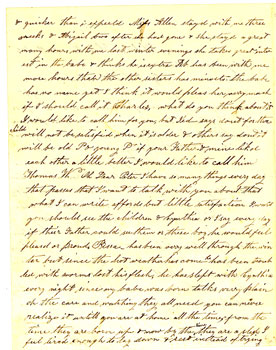 & quicker than I expected Miss Allen stayd with me three
weeks & Abigail two after she left you & she stayd a great
many hours with me last winter evenings she takes great inter
est in the babe & thinks he is extra Deb has been with me
more hours than the other sisters has minutes The babe
has no name yet I think it would please her very much
if I should call it Charles, what do you think about it
I would like to call him for you but Lid says dont for the
will not be satisfied when it is older & others say dont it
will be old P & young P if your Father & mine liked
each other a little better I would like to call him
Thomas W. M Dear Peter I have so many things every day
that passes that I want to talk with you about that
what I can write affords but little satisfaction
you should see the children & Cynthia or I say every day
if their Father could see them or these boy he would feel
pleased or proud, has been very well through the win
ter but since the hot weather has come has been troub
led with worms lost his flesh, he has slept with Cynthia
every night, since my babe was born talks very plain
oh the care and waiting they all need you can never
realize it until you are at home all the time from the
time they are born up & now by the time they are
I feel tired enough to lay down & rest instead of trying